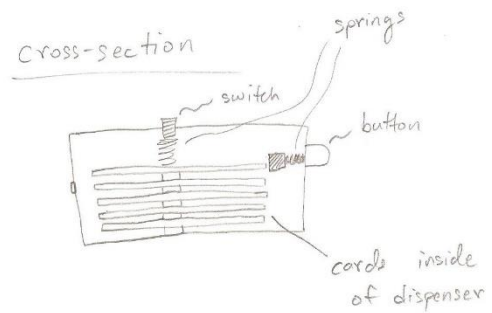 cross-section
springs
switch
button
cards inside
of dispenser